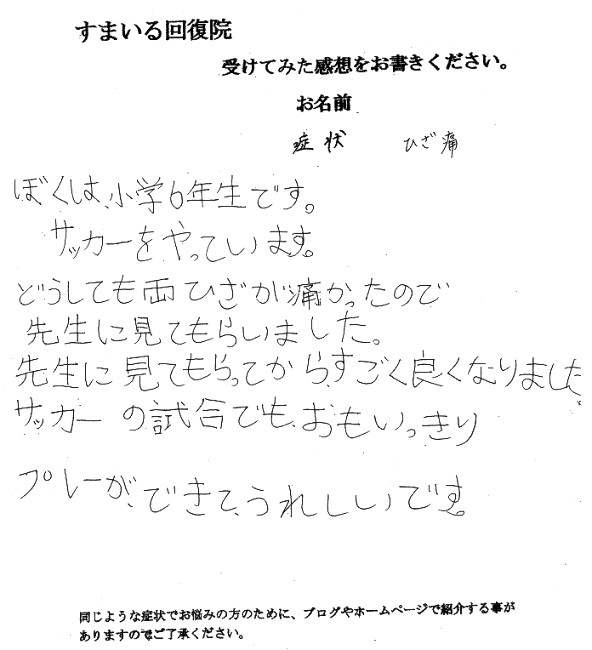 すまいる回復院
受けてみた感想をお書きください。
お名前
症状 ひざ痛
ぼくは、小学6年生です。
サッカーをやっています。
どうしても両ひざが痛かったので
先生に見てもらいました。
先生に見てもらってから、すごく良くなりました。
サッカーの試合でも、おもいっきり
プレーが、できて、うれしいです。
同じような症状でお悩みの方のために、ブログやホームページで紹介する事が
ありますのでご了承ください。